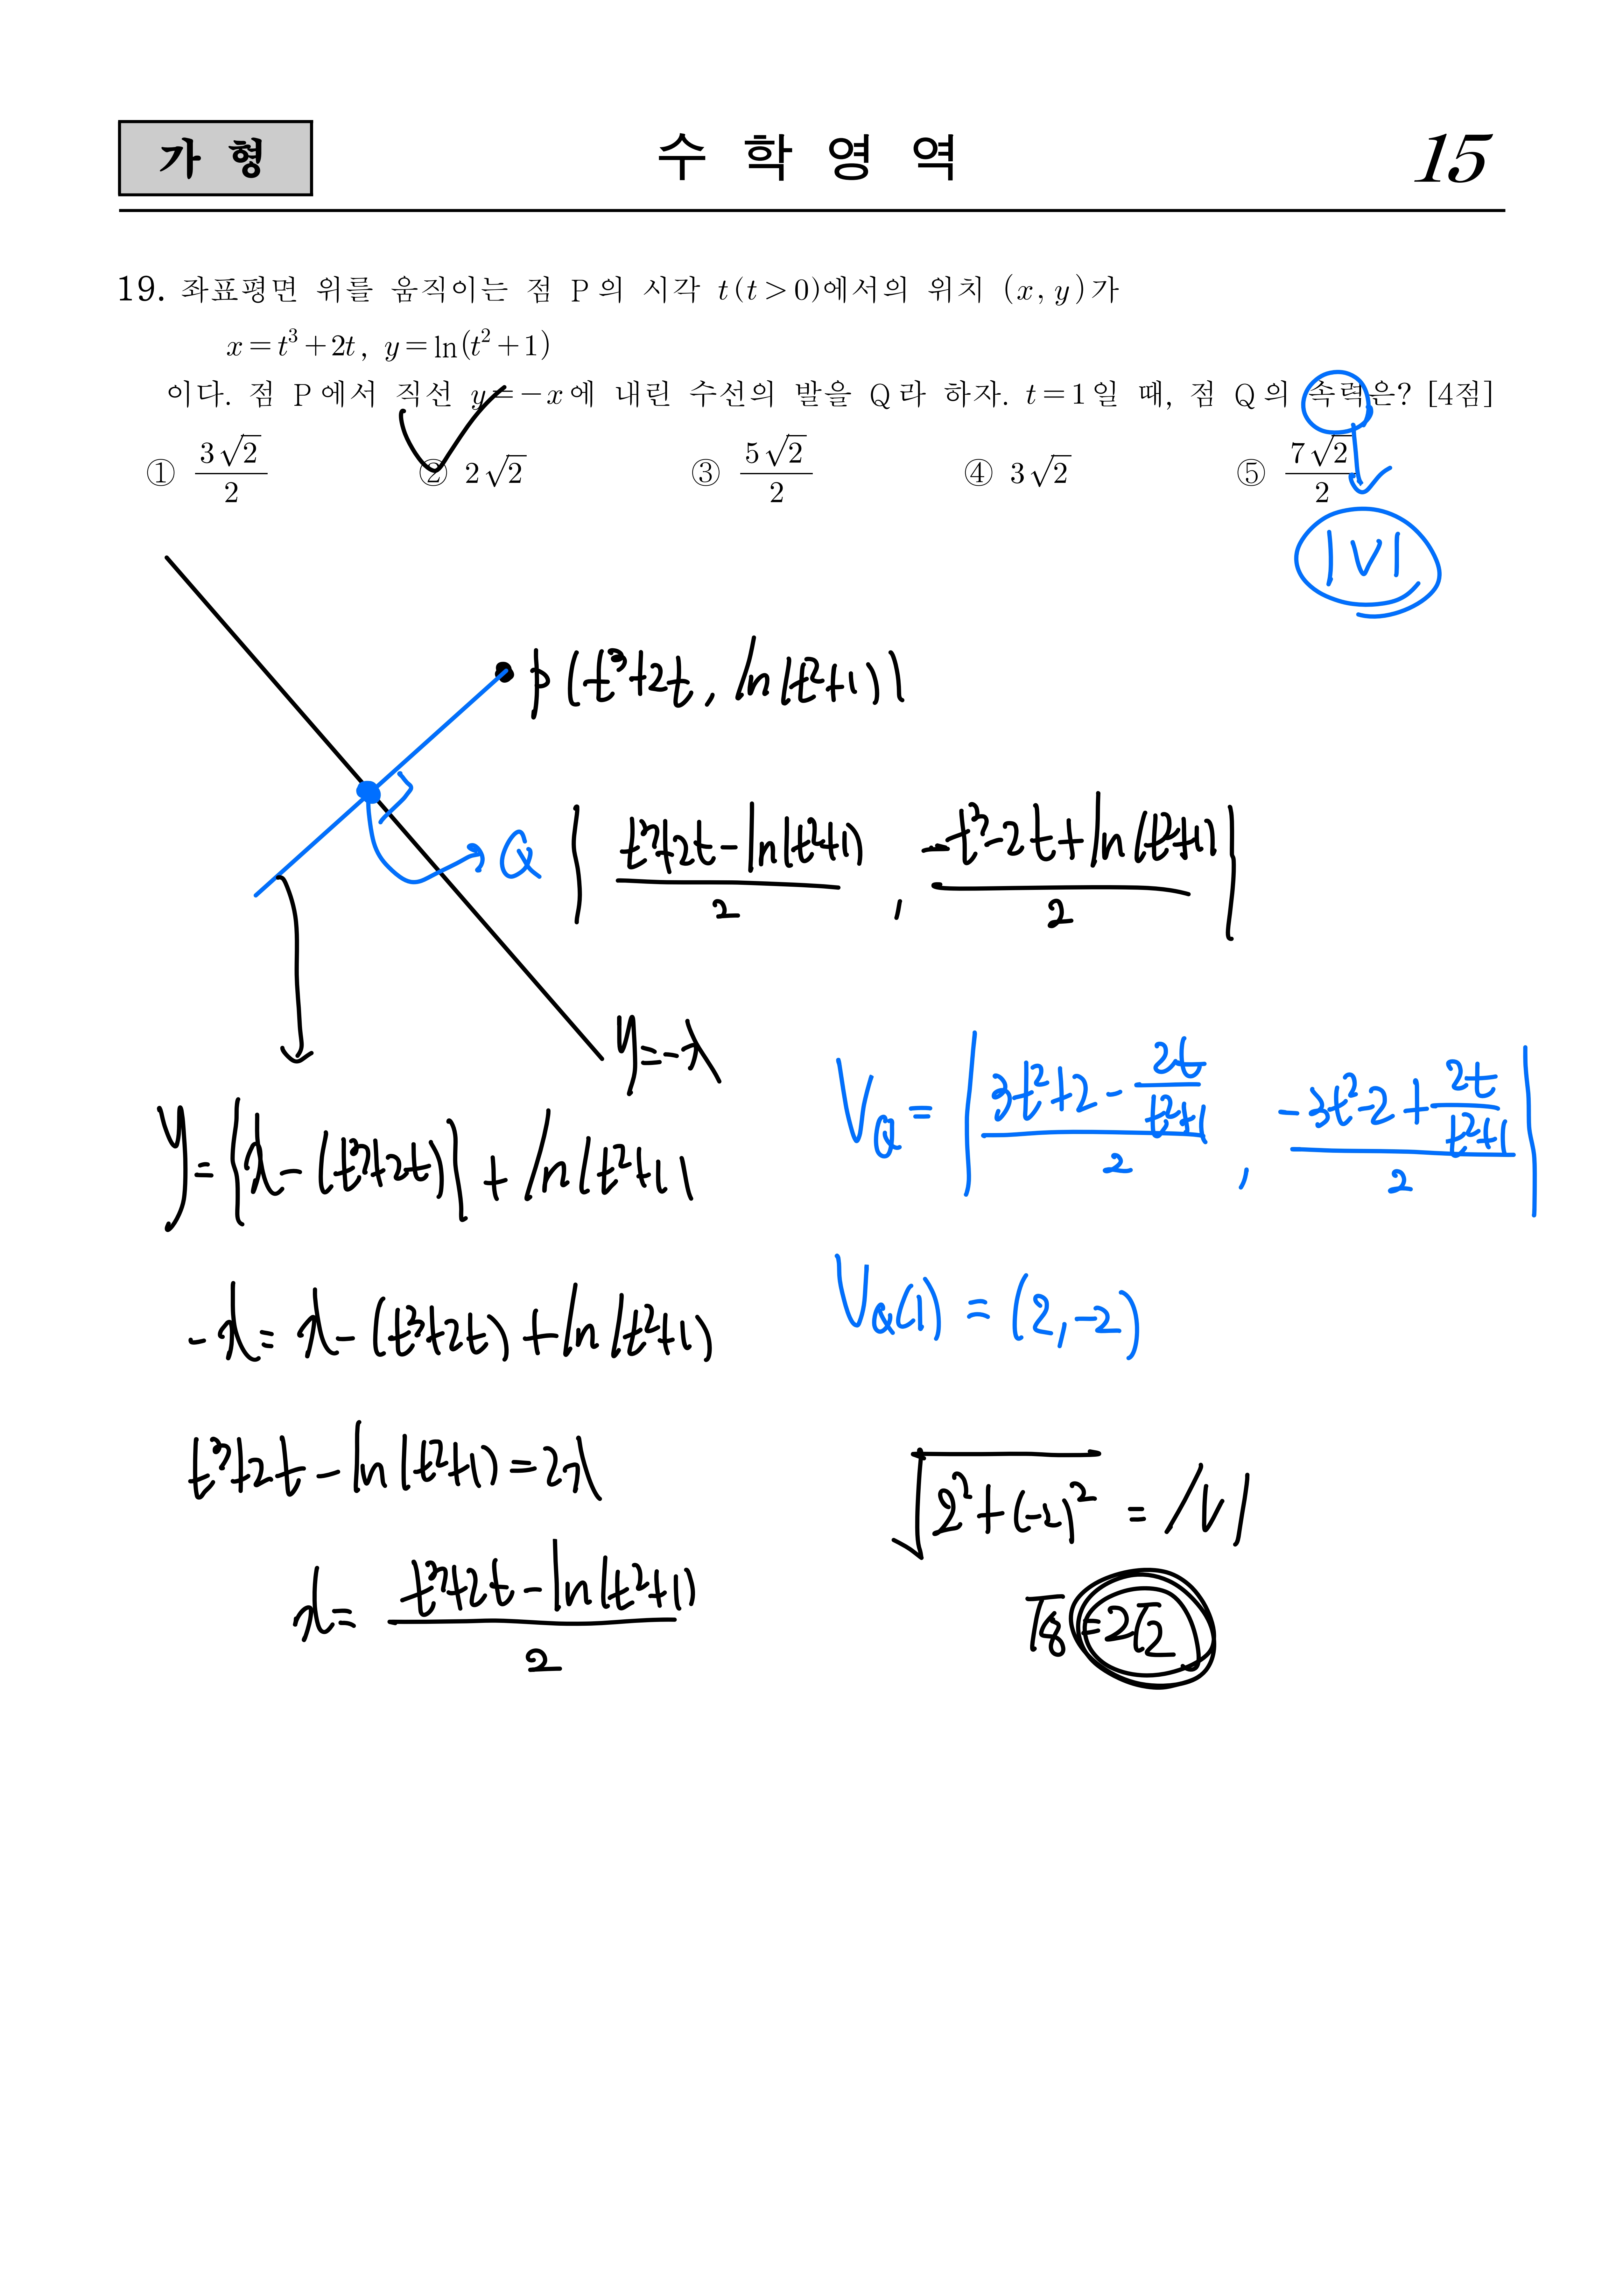 가 형
수 학 영 역
15
19. 좌표평면 위를 움직이는 점 P의 시각 t(t>0)에서의 위치 (x, y)가
x=t³+2t, y=ln(t²+1)
이다. 점 P에서 직선 y=-x에 내린 수선의 발을 Q라 하자. t=1일 때, 점 Q의 속력은? [4점]
① 3√2/2 ② 2√2 ③ 5√2/2 ④ 3√2 ⑤ 7√2/2
|V|
P(t³+2t, ln(t²+1))
Q ( (t³+2t-ln(t²+1))/2 , (-t³-2t+ln(t²+1))/2 )
y=-x
V_Q = ( (3t²+2-2t/(t²+1))/2 , (-3t²-2+2t/(t²+1))/2 )
y={x-(t³+2t)}+ln(t²+1)
V_Q(1) = (2,-2)
-x=x-(t³+2t)+ln(t²+1)
t³+2t-ln(t²+1)=2x
√(2²+(-2)²) = |V|
x= (t³+2t-ln(t²+1))/2
√8=2√2